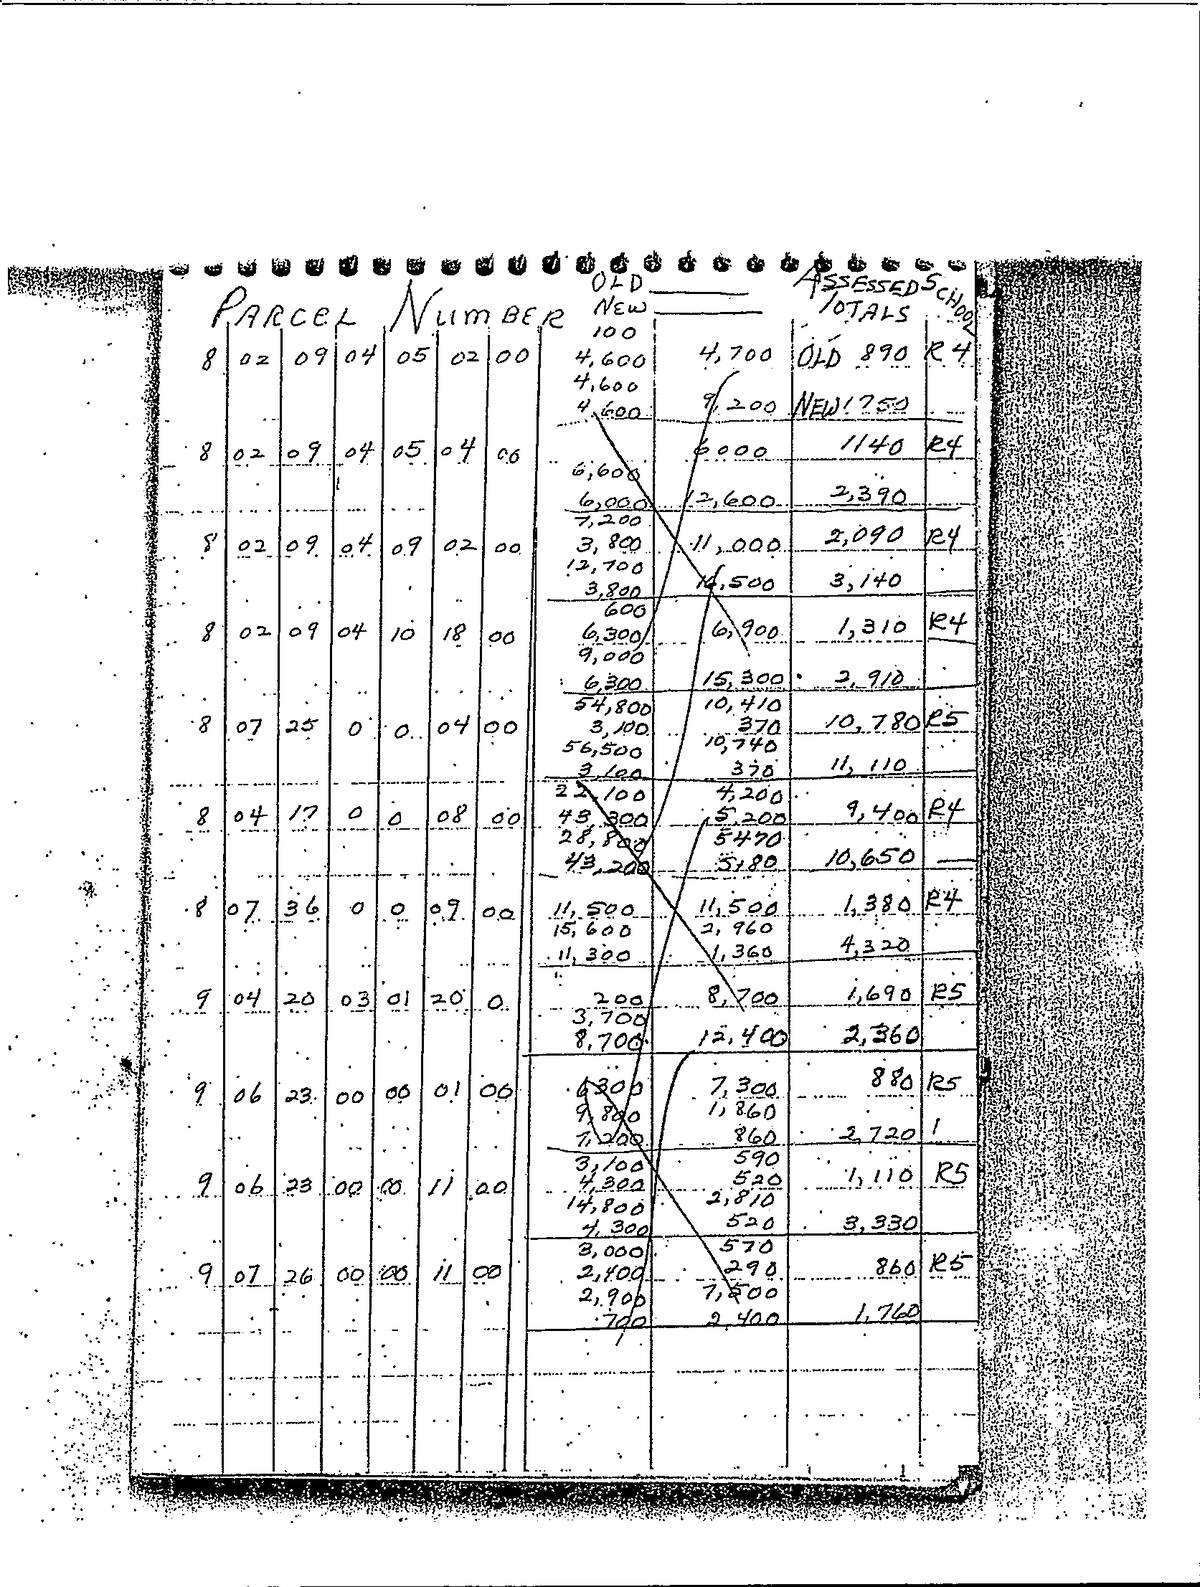 OLD ASSESSED SCHOOL
PARCEL NUMBER NEW TOTALS
100
8 02 09 04 05 02 00 4,600 4,700 OLD 890 R4
4,600
4,600 9,200 NEW 1750
8 02 09 04 05 04 00 6000 1140 R4
6,600
6,000 12,600 2,390
7,200
8 02 09 04 09 02 00 3,800 11,000 2,090 R4
12,700
3,800 16,500 3,140
600
8 02 09 04 10 18 00 6,300 6,900 1,310 R4
9,000
6,300 15,300 2,910
54,800 10,410
8 07 25 0 0 04 00 3,100 370 10,780 R5
56,500 10,740
3,100 370 11,110
22,100 4,200
8 04 17 0 0 08 00 43,300 5,200 9,400 R4
28,800 5470
43,200 5180 10,650
8 07 36 0 0 09 00 11,500 11,500 1,380 R4
15,600 2,960
11,300 1,360 4,320
9 04 20 03 01 20 0 200 8,700 1,690 R5
3,700
8,700 12,400 2,360
9 06 23 00 00 01 00 6300 7,300 880 R5
9,800 1,860
7,200 860 2,720
3,100 590
9 06 23 00 00 11 00 4,300 520 1,110 R5
14,800 2,810
4,300 520 3,330
3,000 570
9 07 26 00 00 11 00 2,400 290 860 R5
2,900 7,500
700 2,400 1,760